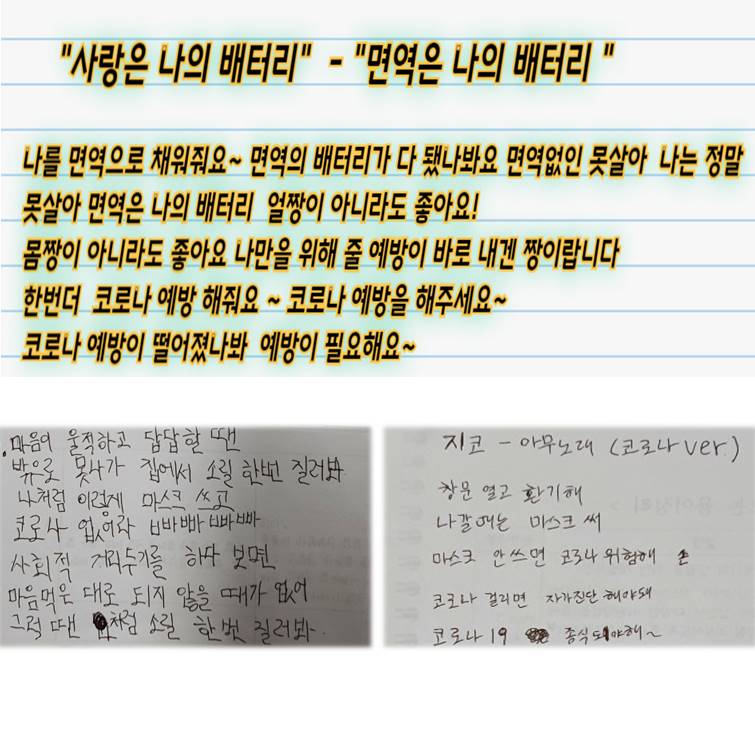 "사랑은 나의 배터리" - "면역은 나의 배터리 "
나를 면역으로 채워줘요~ 면역의 배터리가 다 됐나봐요 면역없인 못살아 나는 정말
못살아 면역은 나의 배터리 얼짱이 아니라도 좋아요!
몸짱이 아니라도 좋아요 나만을 위해 줄 예방이 바로 내겐 짱이랍니다
한번더 코로나 예방 해줘요 ~ 코로나 예방을 해주세요~
코로나 예방이 떨어졌나봐 예방이 필요해요~
마음이 울적하고 답답할 땐
밖으로 못나가 집에서 소릴 한번 질러봐
나처럼 이렇게 마스크 쓰고
코로나 없어라 빠빠빠 빠빠빠
사회적 거리두기를 하다 보면
마음먹은 대로 되지 않을 때가 있어
그럴 땐 처럼 소릴 한번 질러봐.
지코 - 아무노래 (코로나 ver.)
창문 열고 환기해
나갈때는 마스크 써
마스크 안쓰면 코로나 위험해
코로나 걸리면 자가진단 해야돼
코로나 19 종식돼야해~